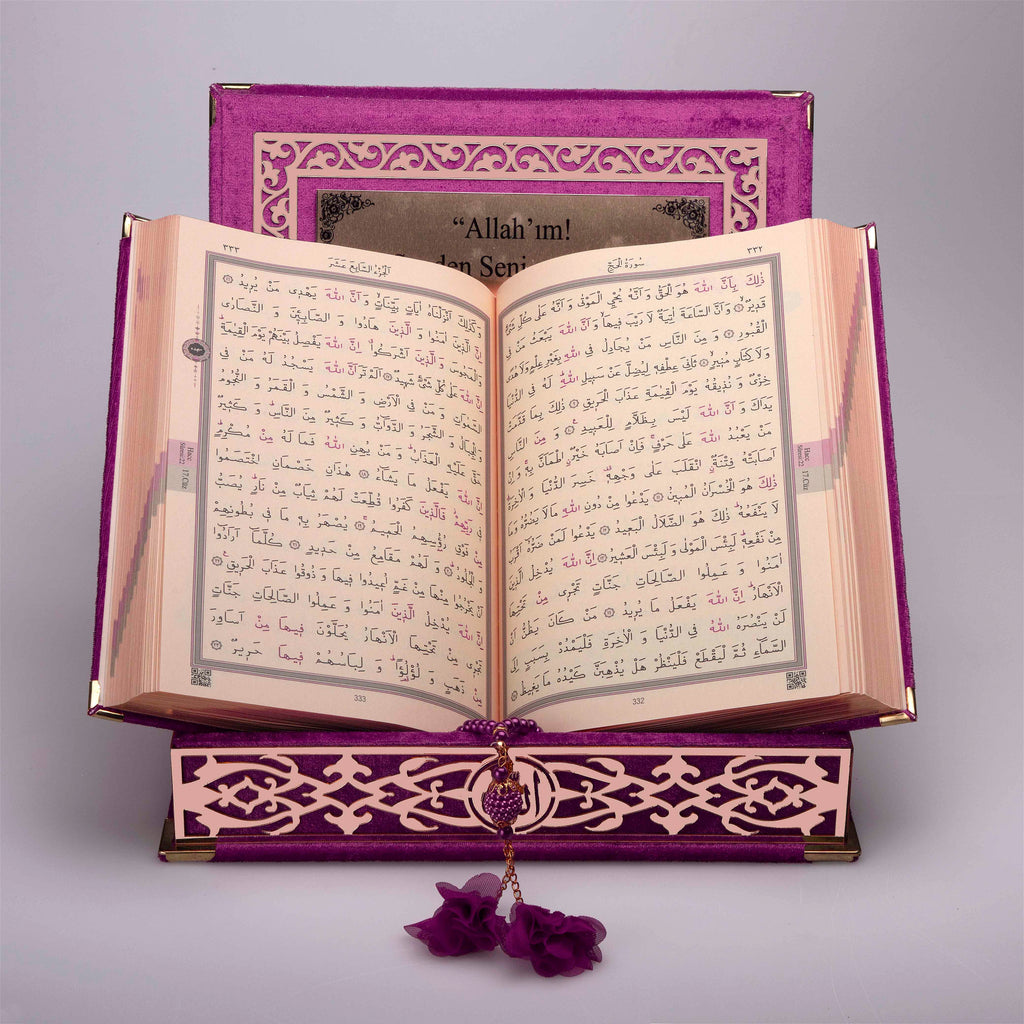 “Allah’ım!
٣٣٢
سُورَةُ الْحَجِّ
ذٰلِكَ بِاَنَّ اللّٰهَ هُوَ الْحَقُّ وَاَنَّهُ يُحْيِ الْمَوْتٰى وَاَنَّهُ عَلٰى كُلِّ شَيْءٍ
قَدِيرٌۙ وَاَنَّ السَّاعَةَ اٰتِيَةٌ لَا رَيْبَ فِيهَاۙ وَاَنَّ اللّٰهَ يَبْعَثُ مَنْ فِي
الْقُبُورِ وَمِنَ النَّاسِ مَنْ يُجَادِلُ فِي اللّٰهِ بِغَيْرِ عِلْمٍ وَلَا هُدًى
وَلَا كِتَابٍ مُنِيرٍۙ ثَانِيَ عِطْفِهِ لِيُضِلَّ عَنْ سَبِيلِ اللّٰهِۜ لَهُ فِي الدُّنْيَا
خِزْيٌ وَنُذِيقُهُ يَوْمَ الْقِيٰمَةِ عَذَابَ الْحَرِيقِ ذٰلِكَ بِمَا قَدَّمَتْ
يَدَاكَ وَاَنَّ اللّٰهَ لَيْسَ بِظَلَّامٍ لِلْعَبِيدِ۟ وَمِنَ النَّاسِ
مَنْ يَعْبُدُ اللّٰهَ عَلٰى حَرْفٍۚ فَاِنْ اَصَابَهُ خَيْرٌۨ اطْمَاَنَّ بِهِۚ وَاِنْ
اَصَابَتْهُ فِتْنَةٌۨ انْقَلَبَ عَلٰى وَجْهِهِ۠ خَسِرَ الدُّنْيَا وَالْاٰخِرَةَۜ
ذٰلِكَ هُوَ الْخُسْرَانُ الْمُبِينُ يَدْعُوا مِنْ دُونِ اللّٰهِ مَا لَا يَضُرُّهُ وَمَا
لَا يَنْفَعُهُۜ ذٰلِكَ هُوَ الضَّلَالُ الْبَعِيدُۚ يَدْعُوا لَمَنْ ضَرُّهُٓ اَقْرَبُ
مِنْ نَفْعِهِۜ لَبِئْسَ الْمَوْلٰى وَلَبِئْسَ الْعَشِيرُ اِنَّ اللّٰهَ يُدْخِلُ الَّذِينَ
اٰمَنُوا وَعَمِلُوا الصَّالِحَاتِ جَنَّاتٍ تَجْرِي مِنْ تَحْتِهَا
الْاَنْهَارُۜ اِنَّ اللّٰهَ يَفْعَلُ مَا يُرِيدُ مَنْ كَانَ يَظُنُّ اَنْ
لَنْ يَنْصُرَهُ اللّٰهُ فِي الدُّنْيَا وَالْاٰخِرَةِ فَلْيَمْدُدْ بِسَبَبٍ اِلَى
السَّمَٓاءِ ثُمَّ لْيَقْطَعْ فَلْيَنْظُرْ هَلْ يُذْهِبَنَّ كَيْدُهُ مَا يَغِيظُ
Hac
Sûresi:22
17.Cüz
332
٣٣٣
اَلْجُزْءُ السَّابِعُ عَشَرَ
وَكَذٰلِكَ اَنْزَلْنَاهُ اٰيَاتٍ بَيِّنَاتٍۙ وَاَنَّ اللّٰهَ يَهْدِي مَنْ يُرِيدُ
اِنَّ الَّذِينَ اٰمَنُوا وَالَّذِينَ هَادُوا وَالصَّابِـِٔينَ وَالنَّصَارٰى
وَالْمَجُوسَ وَالَّذِينَ اَشْرَكُوا اِنَّ اللّٰهَ يَفْصِلُ بَيْنَهُمْ يَوْمَ الْقِيٰمَةِۜ
اِنَّ اللّٰهَ عَلٰى كُلِّ شَيْءٍ شَهِيدٌ اَلَمْ تَرَ اَنَّ اللّٰهَ يَسْجُدُ لَهُ مَنْ فِي
السَّمٰوَاتِ وَمَنْ فِي الْاَرْضِ وَالشَّمْسُ وَالْقَمَرُ وَالنُّجُومُ
وَالْجِبَالُ وَالشَّجَرُ وَالدَّوَٓابُّ وَكَثِيرٌ مِنَ النَّاسِۜ وَكَثِيرٌ
حَقَّ عَلَيْهِ الْعَذَابُۜ وَمَنْ يُهِنِ اللّٰهُ فَمَا لَهُ مِنْ مُكْرِمٍۜ
اِنَّ اللّٰهَ يَفْعَلُ مَا يَشَٓاءُ هٰذَانِ خَصْمَانِ اخْتَصَمُوا
فِي رَبِّهِمْۘ فَالَّذِينَ كَفَرُوا قُطِّعَتْ لَهُمْ ثِيَابٌ مِنْ نَارٍۜ يُصَبُّ
مِنْ فَوْقِ رُؤُ۫سِهِمُ الْحَمِيمُۚ يُصْهَرُ بِهِ مَا فِي بُطُونِهِمْ
وَالْجُلُودُۜ وَلَهُمْ مَقَامِعُ مِنْ حَدِيدٍ كُلَّمَٓا اَرَادُٓوا
اَنْ يَخْرُجُوا مِنْهَا مِنْ غَمٍّ اُعِيدُوا فِيهَا وَذُوقُوا عَذَابَ الْحَرِيقِ۟
اِنَّ اللّٰهَ يُدْخِلُ الَّذِينَ اٰمَنُوا وَعَمِلُوا الصَّالِحَاتِ جَنَّاتٍ
تَجْرِي مِنْ تَحْتِهَا الْاَنْهَارُ يُحَلَّوْنَ فِيهَا مِنْ اَسَاوِرَ
مِنْ ذَهَبٍ وَلُؤْلُؤًۜا وَلِبَاسُهُمْ فِيهَا حَرِيرٌ
Hac
Sûresi:22
17.Cüz
333